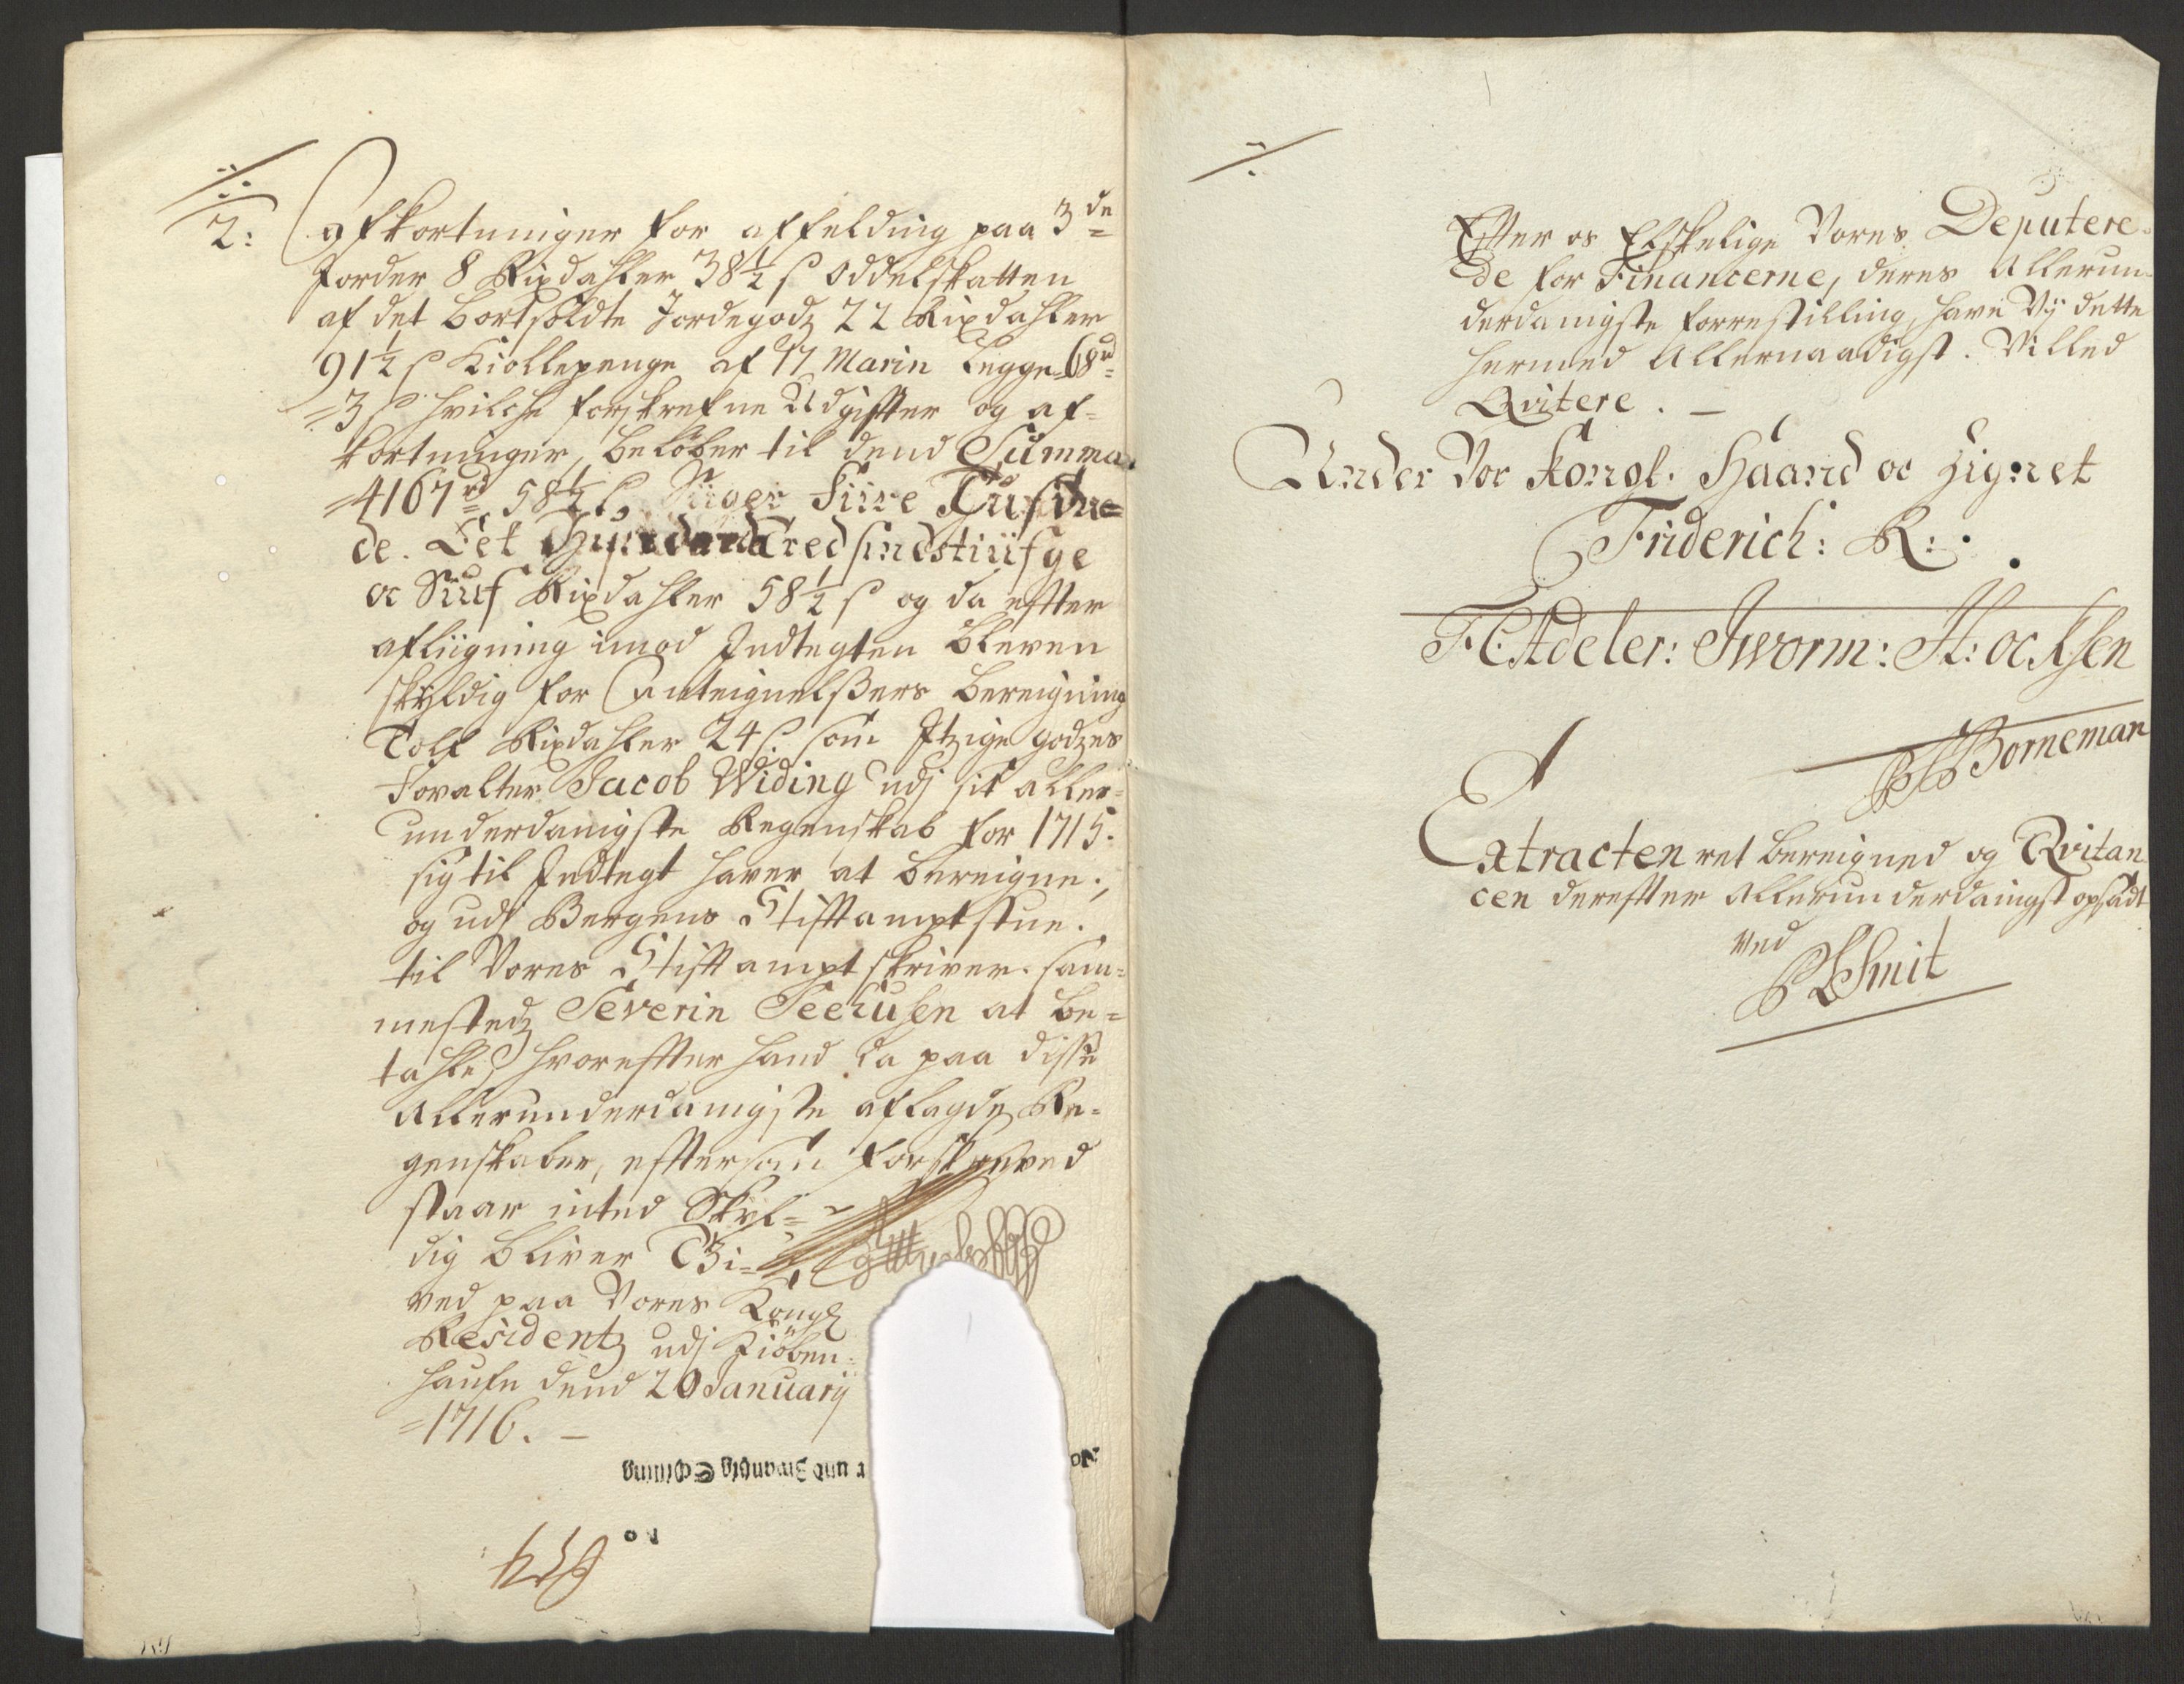 ./.
2: Afkortninger for affelding paa 3de
Jorder 8 Rixdahler 38½ s Oddelskatten
af det bortsoldte Jordegodz 22 Rixdahler
91½ s Kiollepenge af 17 Marin Legge 68rd
=3 s hvilche forskrefne Udgiffter og af=
kortninger, beløber til dend Summa.
=4167rd 58½ s, Siiger Fiire Tusin=
de. Eet Hundred Tredsindstiufge
oc Siuf Rixdahler 58½ s og da effter
afliigning imod Indtegten bleven
skyldig for Anteignelßers bereigning
Tolf Rixdahler 24 s. som Itzige godzes
Forvalter Jacob Widing udj sit aller=
underdanigste Regenskab for 1715.
sig til Indtegt haver at bereigne.,
og udj Bergens Stifftamptstue.
til Vores Stifftamptskriver. sam=
mestedz Severin Seehusen at be=
tahle, hvoreffter hand da paa disse
allerunderdanigste aflagde Re=
genskaber, effter som forskreved
staar inted Skyl=
dig bliver Gi=
ved paa Vores Kongl
Residentz udj Kiøben=
haufn dend 20 January
=1716. –
r und Zwantzig Schilling
No
./.
Effter os Elskelige Vores Deputere=
de for Financerne, deres Allerun=
derdanigste forrestilling, have Vy dette
hermed Allernaadigst. Villed
Qvitere. –
Under Vor Kongl. Haand oc Zignet
Friderich: R:.
FCAdeler: JWorm: H: ocksen
Borneman
Extracten ret bereigned og Qvitan
cen dereffter Allerunderdanigst opsadt
ved
Smit